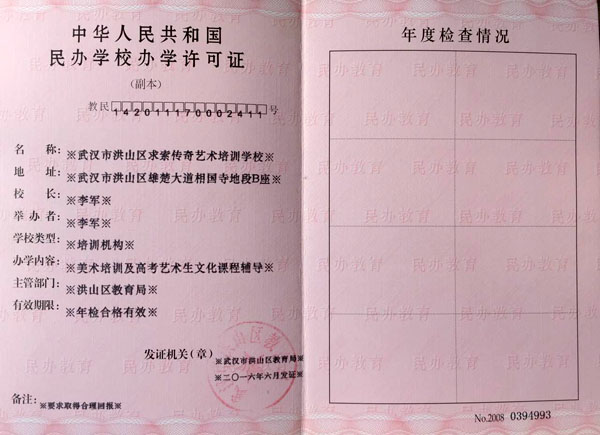 中华人民共和国
民办学校办学许可证
(副本)
教民142011170002411号
名称：※武汉市洪山区求索传奇艺术培训学校※
地址：※武汉市洪山区雄楚大道相国寺地段B座※
校长：※李军※
举办者：※李军※
学校类型：※培训机构※
办学内容：※美术培训及高考艺术生文化课程辅导※
主管部门：※洪山区教育局※
有效期限：※年检合格有效※
发证机关(章)
※武汉市洪山区教育局※
※二〇一六年六月发证※
备注：※要求取得合理回报※
年度检查情况
民办教育
No.2008 0394993